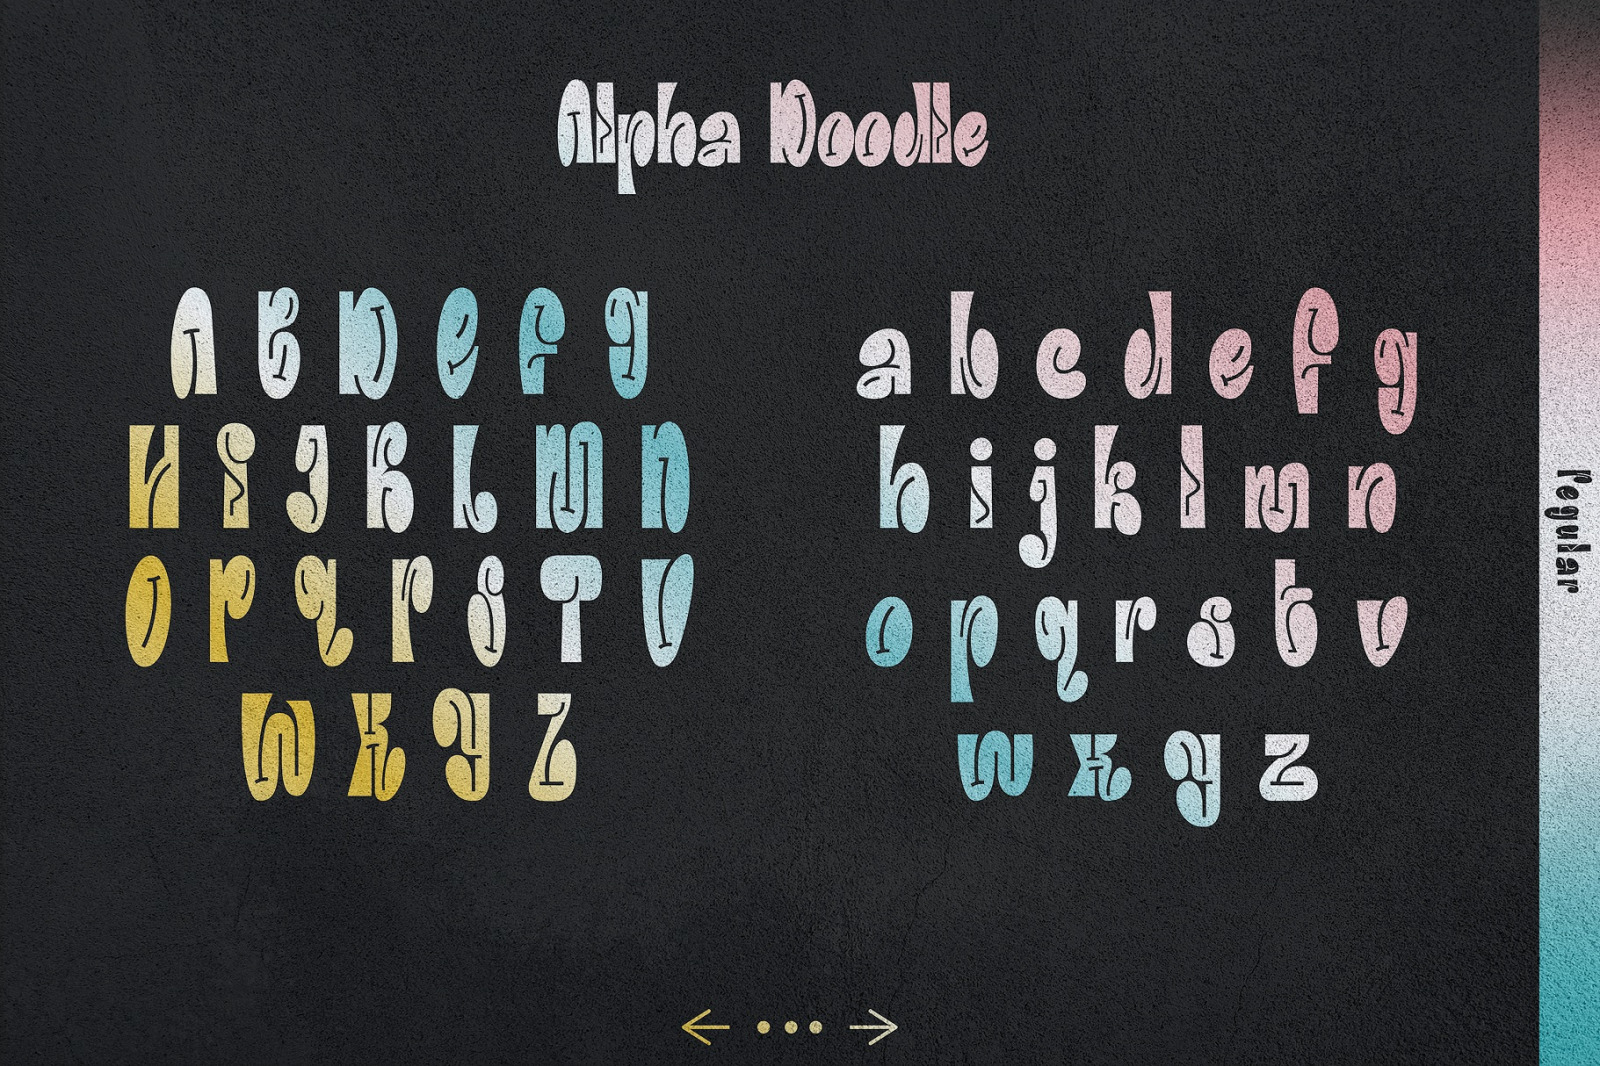 Alpha Doodle
A B D E F G
H I J K L M N
O P Q R S T V
W X Y Z
a b c d e f g
h i j k l m n
o p q r s t v
w x y z
Regular